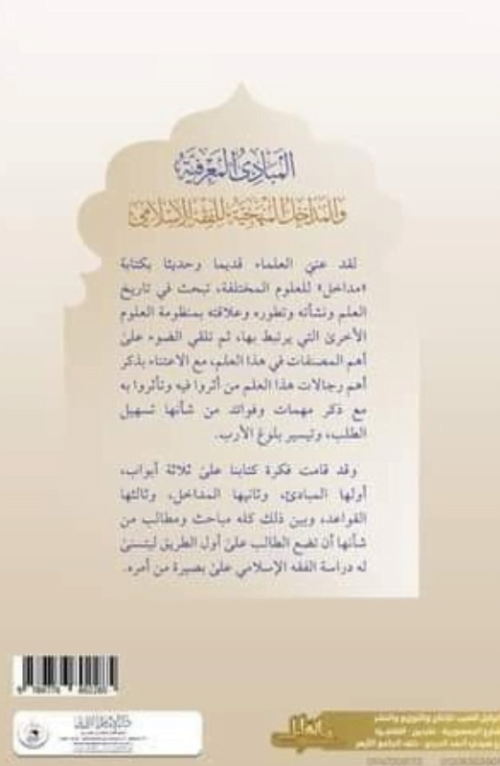 المبادئ المعرفية
والمداخل المنهجية للفقه الإسلامي
لقد عني العلماء قديما وحديثا بكتابة
«مداخل» للعلوم المختلفة، تبحث في تاريخ
العلم ونشأته وتطوره وعلاقته بمنظومة العلوم
الأخرى التي يرتبط بها، ثم تلقي الضوء على
أهم المصنفات في هذا العلم، مع الاعتناء بذكر
أهم رجالات هذا العلم من أثروا فيه وتأثروا به
مع ذكر مهمات وفوائد من شأنها تسهيل
الطلب، وتيسير بلوغ الأرب.
وقد قامت فكرة كتابنا على ثلاثة أبواب،
أولها المبادئ، وثانيها المداخل، وثالثها
القواعد، وبين ذلك كله مباحث ومطالب من
شأنها أن تضع الطالب على أول الطريق ليتسنى
له دراسة الفقه الإسلامي على بصيرة من أمره.